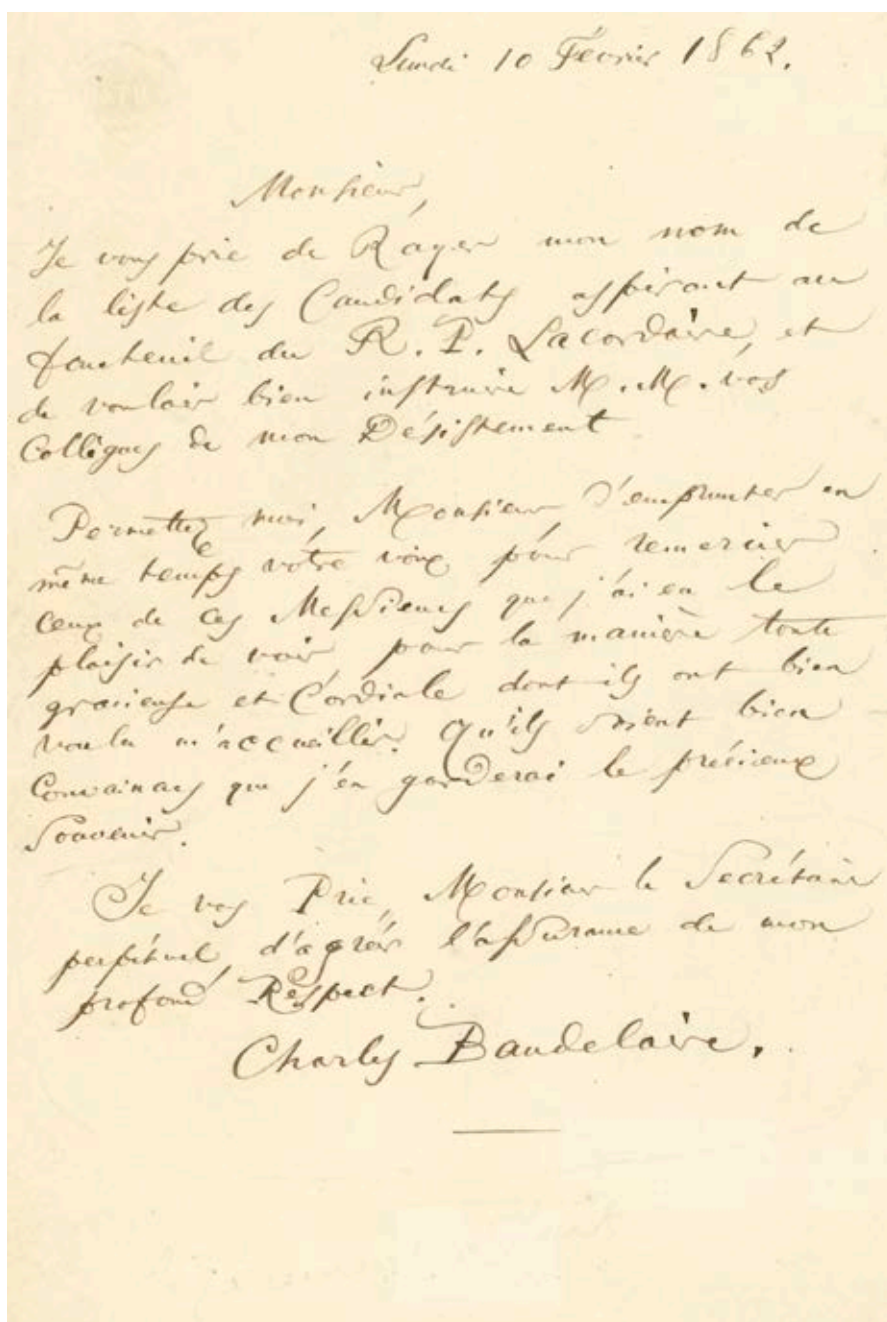 Lundi 10 Février 1862.
Monsieur,
Je vous prie de Rayer mon nom de
la liste des Candidats aspirant au
fauteuil du R. P. Lacordaire, et
de vouloir bien instruire M.M. vos
Collègues de mon Désistement
Permettez moi, Monsieur, d'emprunter en
même temps votre voix pour remercier
ceux de ces Messieurs que j'ai eu le
plaisir de voir, pour la manière toute
gracieuse et Cordiale dont ils ont bien
voulu m'accueillir. Qu'ils soient bien
Convaincus que j'en garderai le précieux
Souvenir.
Je vous Prie, Monsieur le Secrétaire
perpétuel, d'agréer l'assurance de mon
profond Respect.
Charles Baudelaire.